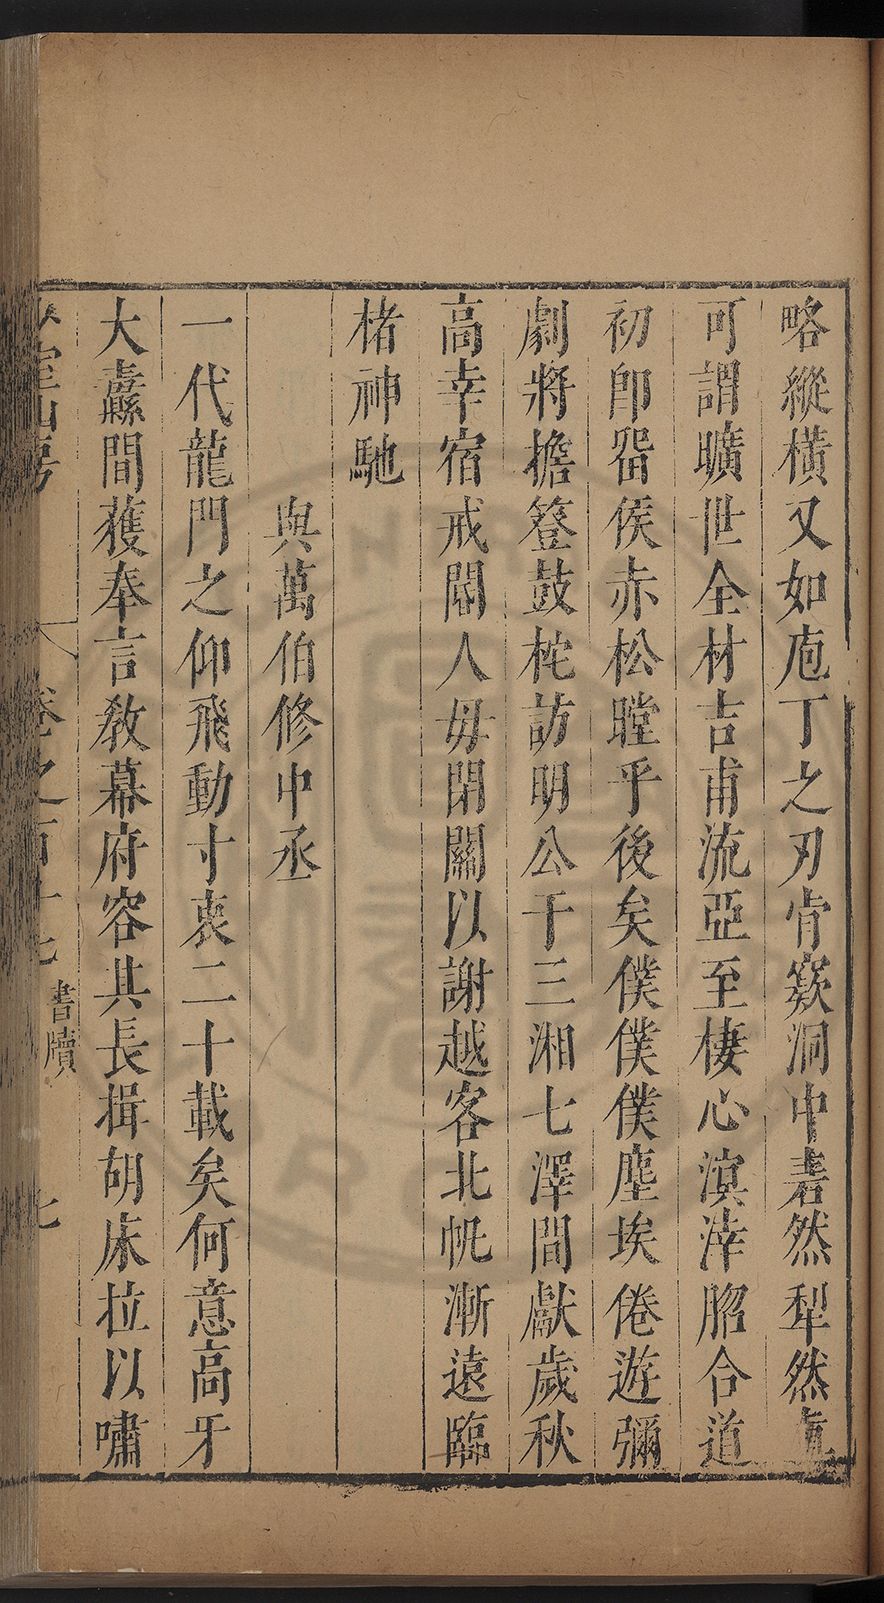 略縱橫又如庖丁之刃肯窾洞中砉然犁然真
可謂曠世全材吉甫流亞至棲心溟涬脗合道
初卽畱侯赤松瞠乎後矣僕僕僕塵埃倦遊彌
劇將擔簦鼓枻訪明公于三湘七澤間獻歲秋
高幸宿戒閽人毋閉關以謝越客北帆漸遠臨
楮神馳
與萬伯修中丞
一代龍門之仰飛動寸衷二十載矣何意高牙
大纛間獲奉言教幕府容其長揖胡床拉以嘯
室山房
卷之百十七
書牘
七